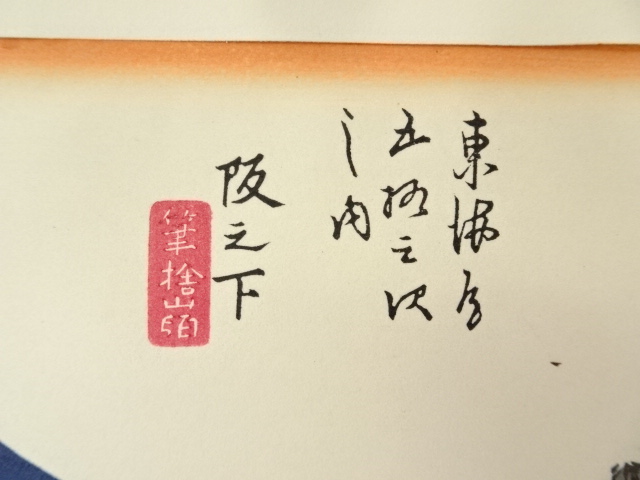 東海道
五拾三次
之内
阪之下
筆捨山嶺